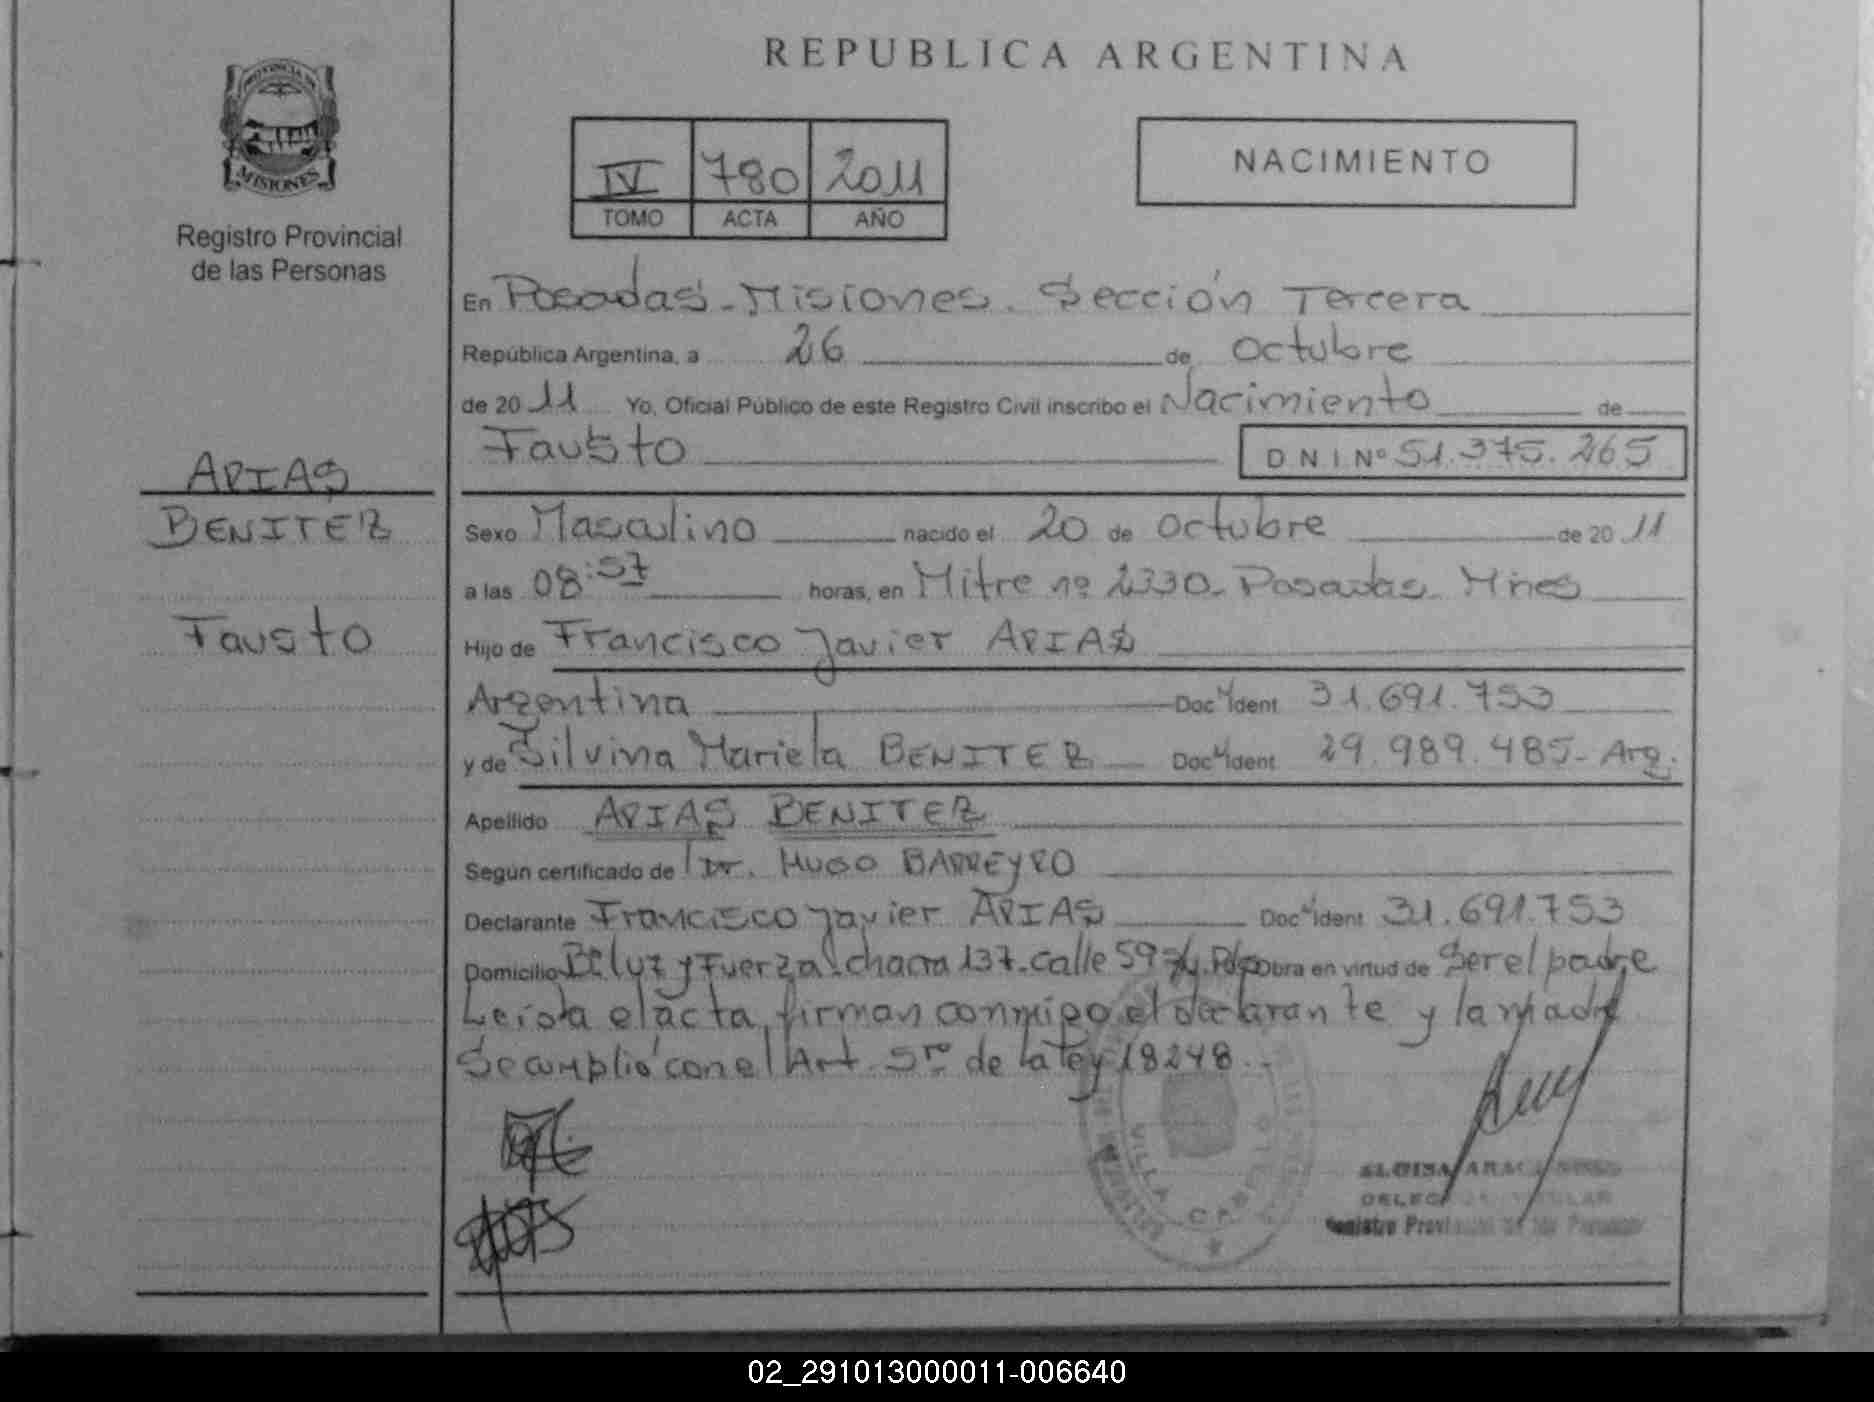 PROVINCIA DE
MISIONES
Registro Provincial
de las Personas
ARIAS
BENITEZ
Fausto
REPUBLICA ARGENTINA
IV 780 2011
TOMO ACTA AÑO
NACIMIENTO
En Posadas - Misiones. Sección Tercera
República Argentina, a 26 de Octubre
de 20 11 Yo, Oficial Público de este Registro Civil inscribo el Nacimiento de
Fausto DNI Nº 51.375.265
Sexo Masculino nacido el 20 de Octubre de 20 11
a las 08:57 horas, en Mitre nº 2330 - Posadas - Mnes
Hijo de Francisco Javier ARIAS
Argentina Doc. Ident 31.691.753
y de Silvina Mariela BENITEZ Doc. Ident 29.989.485 - Arg.
Apellido ARIAS BENITEZ
Según certificado de Dr. HUGO BARREYRO
Declarante Francisco Javier ARIAS Doc. Ident 31.691.753
Domicilio Bº luz y Fuerza - chacra 137 - calle 59 Obra en virtud de Ser el padre
Leída el acta, firman conmigo el declarante y la madre
Se cumplió con el Art. 5to de la ley 18248.-
VILLA CABELLO
ELOISA
Registro Provincial de las Personas
02_291013000011-006640